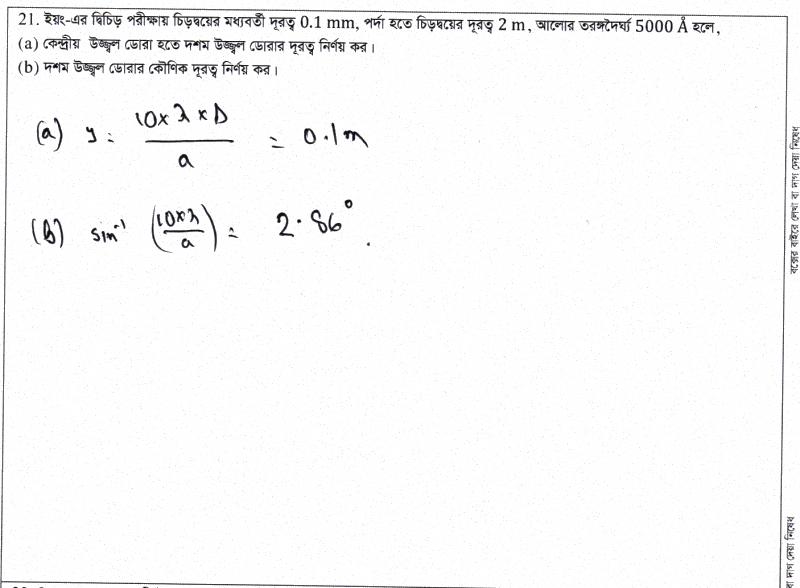 21. ইয়ং-এর দ্বিচিড় পরীক্ষায় চিড়দ্বয়ের মধ্যবর্তী দূরত্ব 0.1 mm, পর্দা হতে চিড়দ্বয়ের দূরত্ব 2 m, আলোর তরঙ্গদৈর্ঘ্য 5000 Å হলে,
(a) কেন্দ্রীয় উজ্জ্বল ডোরা হতে দশম উজ্জ্বল ডোরার দূরত্ব নির্ণয় কর।
(b) দশম উজ্জ্বল ডোরার কৌণিক দূরত্ব নির্ণয় কর।
(a) y = 10×λ×D / a = 0.1 m
(b) sin⁻¹ (10×λ / a) = 2.86°.
বক্সের বাইরে লেখা বা দাগ দেয়া নিষেধ
বা দাগ দেয়া নিষেধ